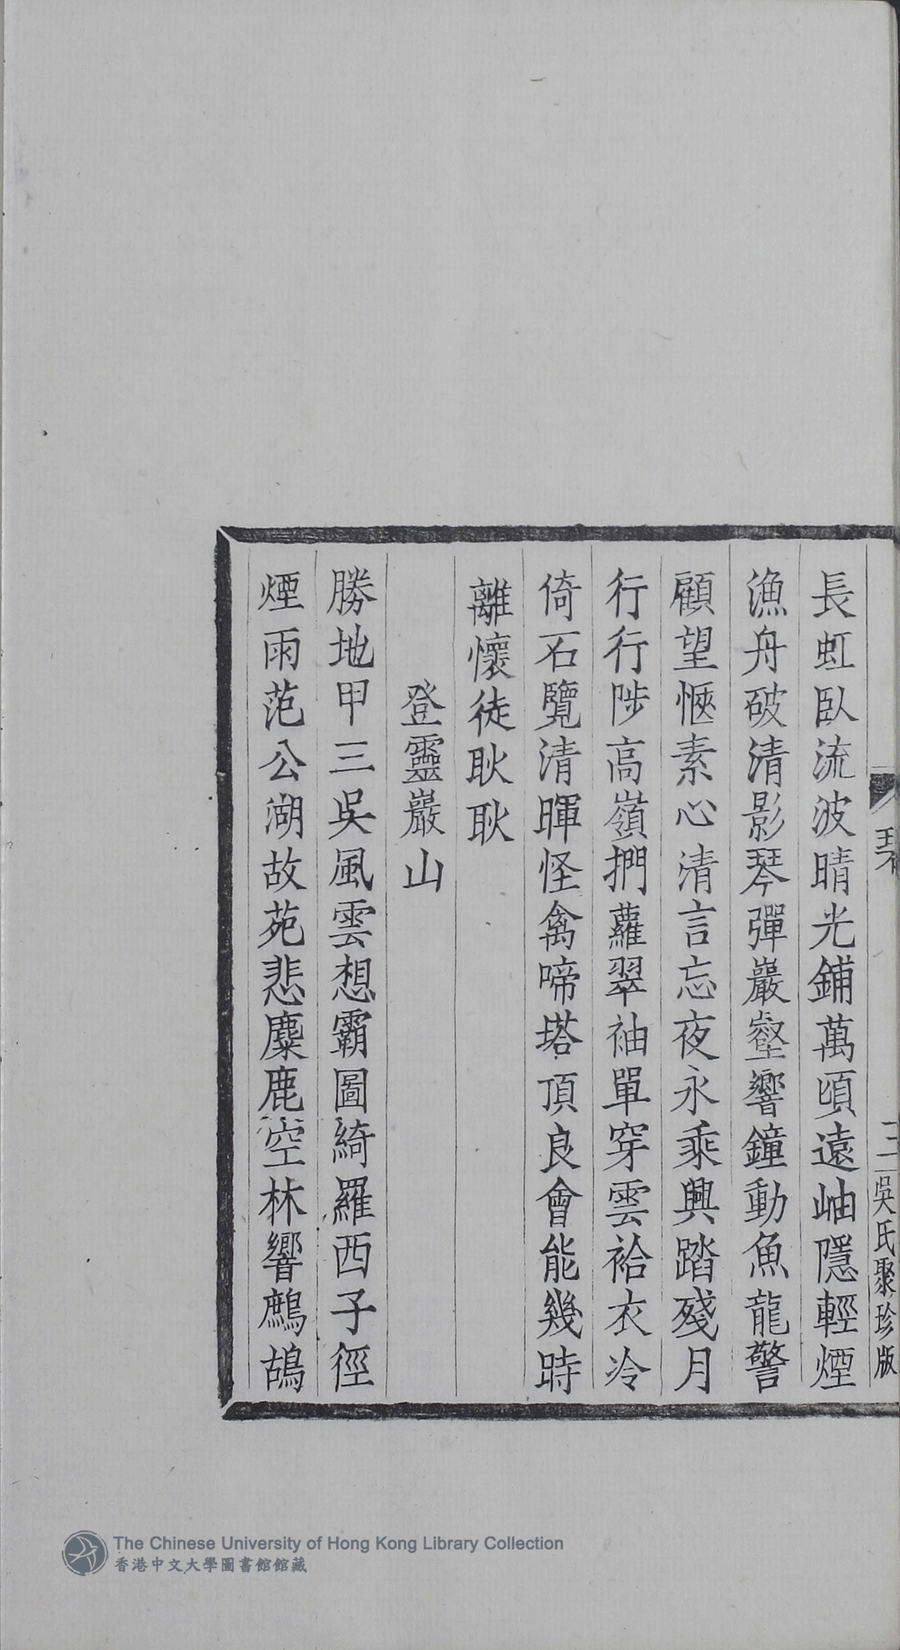 三 吳氏聚珍版
長虹臥流波晴光鋪萬頃遠岫隱輕煙
漁舟破清影琴彈巖壑響鐘動魚龍警
顧望愜素心清言忘夜永乘興踏殘月
行行陟高嶺捫蘿翠袖單穿雲袷衣冷
倚石覽清暉怪禽啼塔頂良會能幾時
離懷徒耿耿
登靈巖山
勝地甲三吳風雲想霸圖綺羅西子徑
煙雨范公湖故苑悲麋鹿空林響鷓鴣
The Chinese University of Hong Kong Library Collection
香港中文大學圖書館館藏